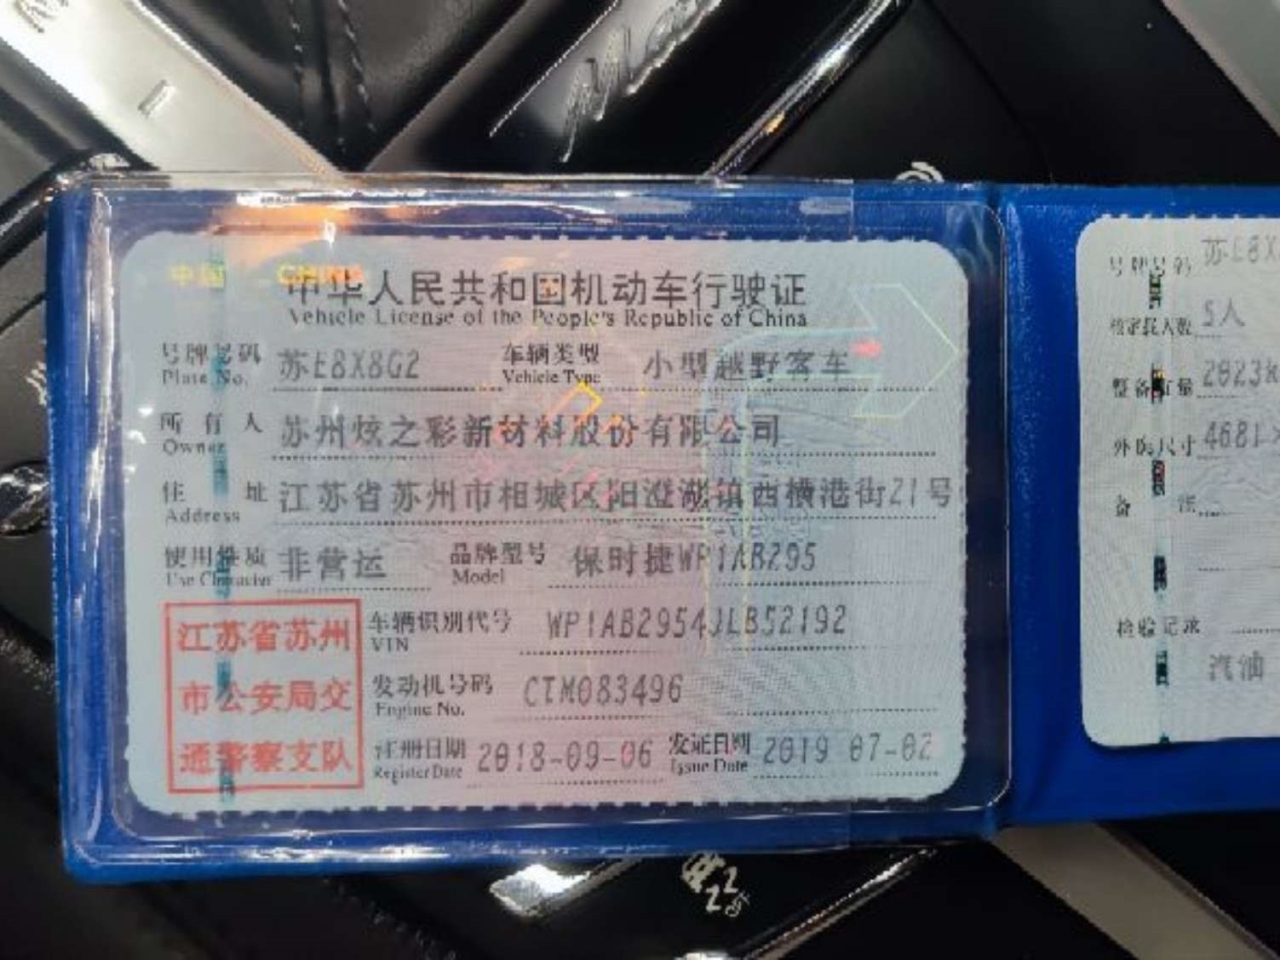 中国 CHINA
中华人民共和国机动车行驶证
Vehicle License of the People's Republic of China
号牌号码 苏E8X8G2 车辆类型 小型越野客车
Plate No. Vehicle Type
所有人 苏州炫之彩新材料股份有限公司
Owner
住址 江苏省苏州市相城区阳澄湖镇西横港街21号
Address
使用性质 非营运 品牌型号 保时捷WP1AB295
Use Character Model
江苏省苏州
市公安局交
通警察支队
车辆识别代号 WP1AB2954JLB52192
VIN
发动机号码 CTM083496
Engine No.
注册日期 2018-09-06 发证日期 2019 07-02
Register Date Issue Date
号牌号码 苏E8X
核定载人数 5人
整备质量 2023k
外廓尺寸 4681
备注
检验记录
汽油